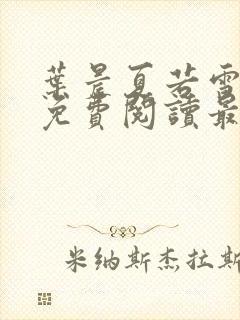 葉晨夏若雪
免費閱讀最
米纳斯杰拉斯